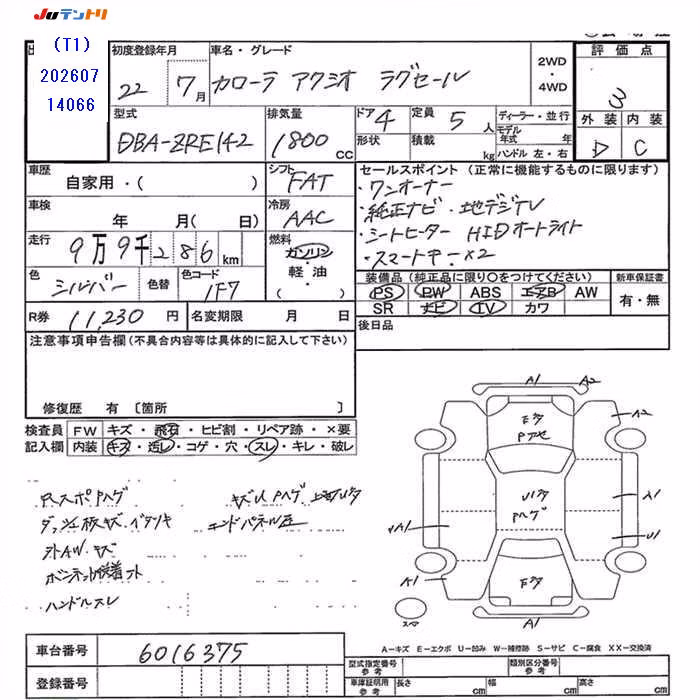 JUテントリ
(T1)
202607
14066
初度登録年月
22 7月
車名・グレード
カローラ アクシオ ラグゼール
2WD
・
4WD
評価点
3
外装 内装
D C
型式
DBA-ZRE142
排気量
1800 CC
ドア 4
形状
定員 5 人
積載 kg
ディーラー・並行
モデル年式 年
ハンドル 左・右
車歴
自家用・( )
シフト
FAT
車検
年 月( 日)
冷房
AAC
走行
9万9千286 km
燃料
ガソリン
・
軽・油
( )
色
シルバー
色替
色コード
1F7
R券 11,230 円
名変期限 月 日
セールスポイント (正常に機能するものに限ります)
・ワンオーナー
・純正ナビ・地デジTV
・シートヒーター HIDオートライト
・スマートキー×2
装備品 (純正品に限り○をつけてください)
PS PW ABS エアB AW
SR ナビ TV カワ
新車保証書
有・無
後日品
注意事項申告欄(不具合内容等は具体的に記入して下さい)
修復歴 有 〔箇所 〕
検査員記入欄
FW キズ・飛石・ヒビ割・リペア跡・×要
内装 キズ・汚レ・コゲ・穴・スレ・キレ・破レ
エンドパネル圧
外AW キズ
ハンドルスレ
A1 A2
A2
A1
U1
A1
A1
A1
A－キズ E－エクボ U－凹み W－補修跡 S－サビ C－腐食 XX－交換済
車台番号 6016375
登録番号
型式指定番号 参考
類別区分番号 参考
車庫証明用 参考
長さ cm
幅 cm
高さ cm